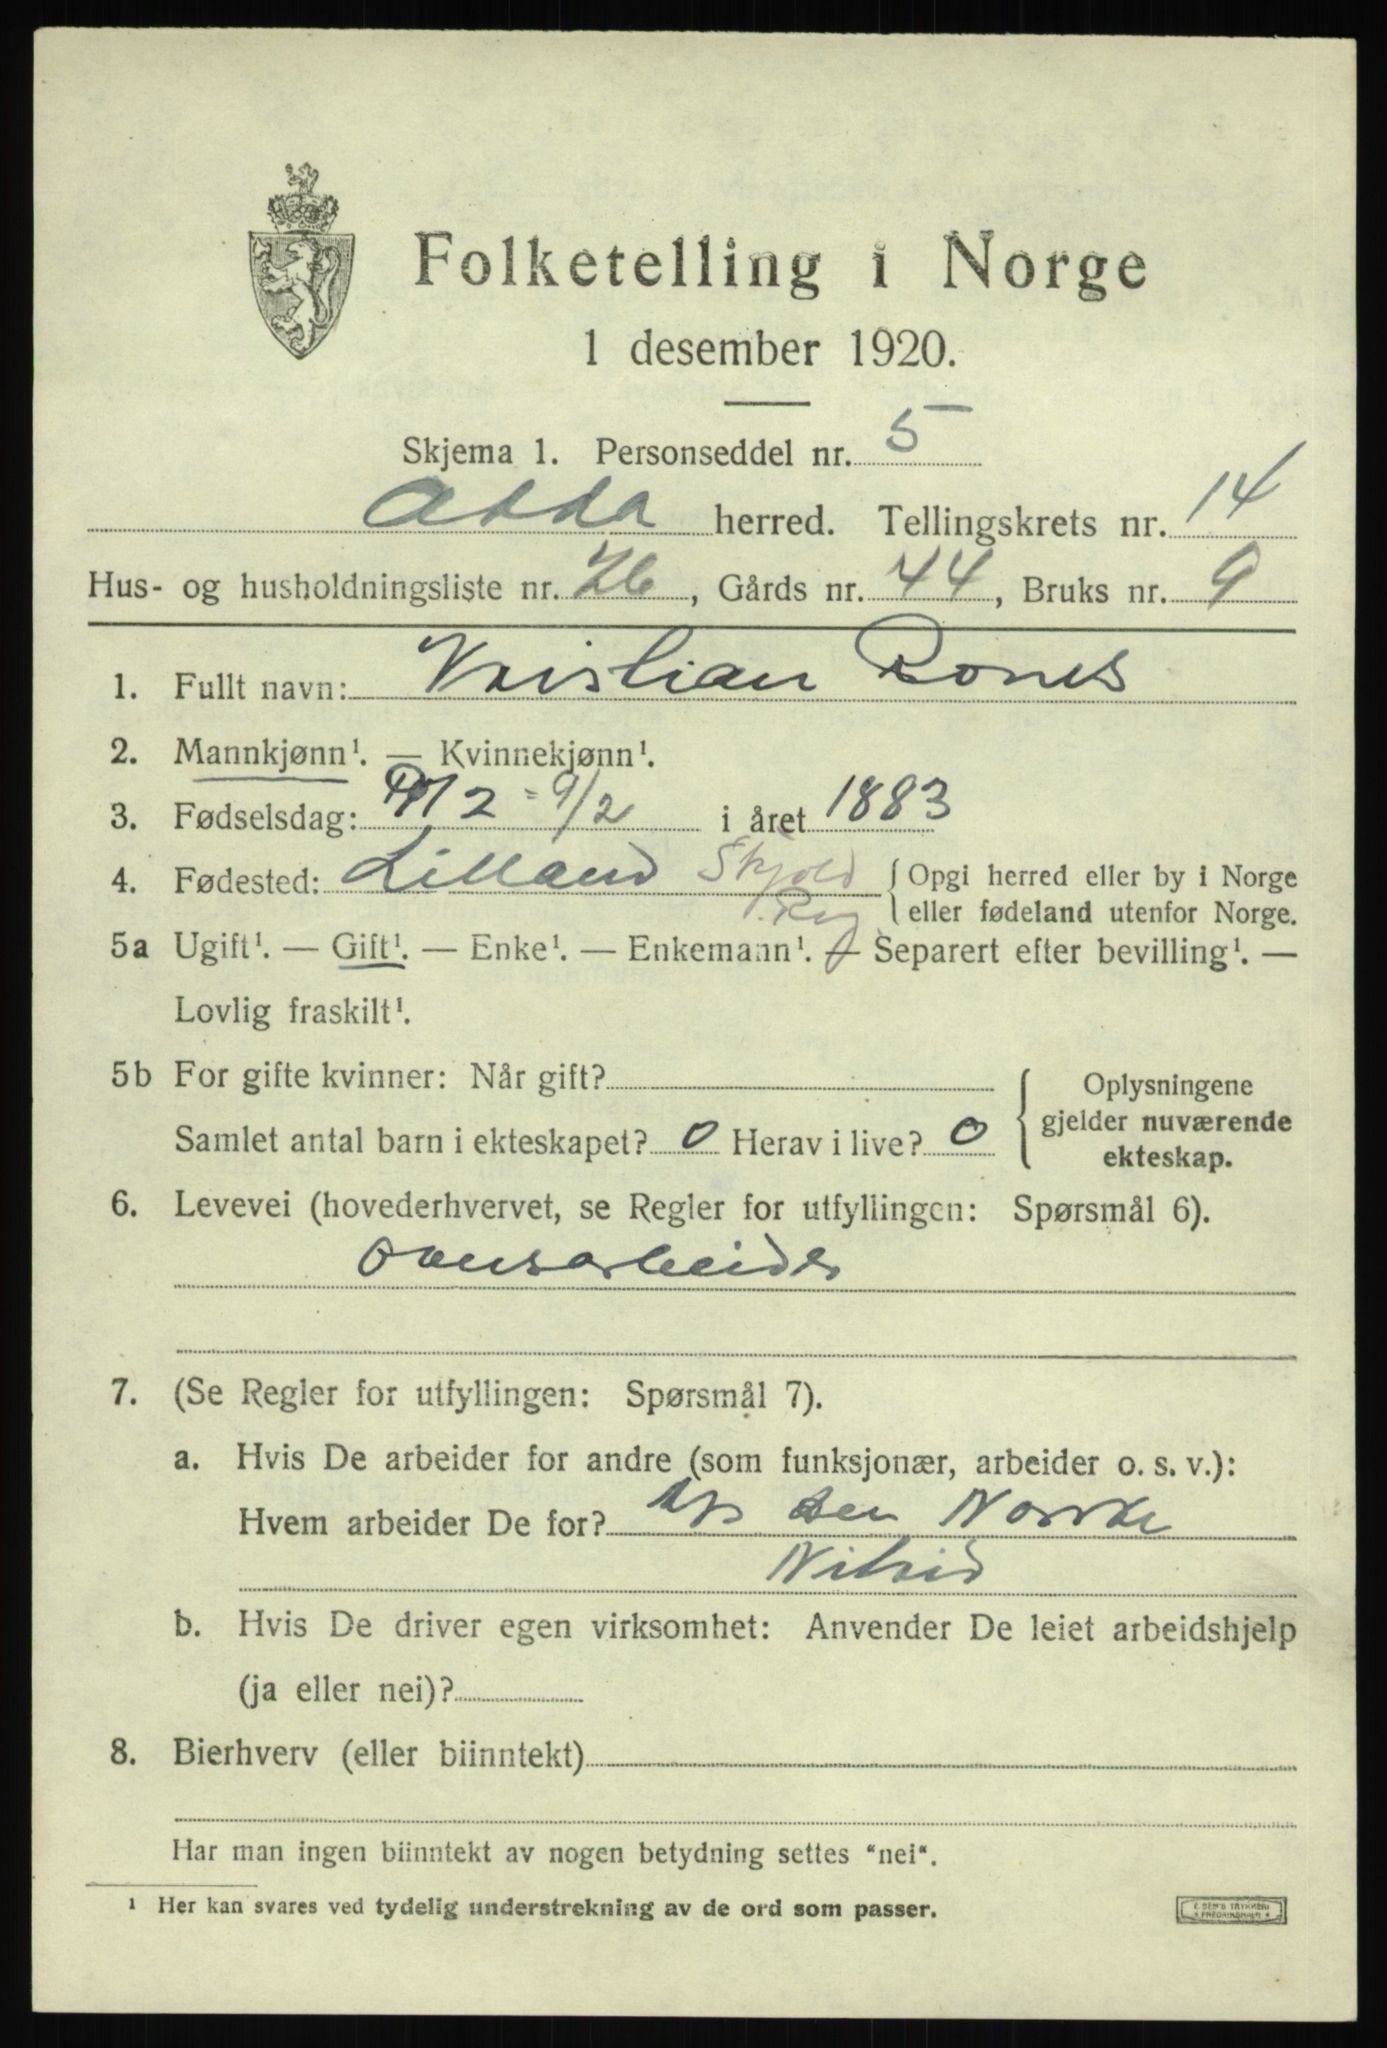 Folketelling i Norge
1 desember 1920.
Skjema 1. Personseddel nr. 5
Odda herred. Tellingskrets nr. 14
Hus- og husholdningsliste nr. 26, Gårds nr. 44, Bruks nr. 9
1. Fullt navn: Kristian Rones
2. Mannkjønn¹. — Kvinnekjønn¹.
3. Fødselsdag: 2 = 9/2 i året 1883
4. Fødested: Lilland Skjold { Opgi herred eller by i Norge
Rog. eller fødeland utenfor Norge.
5a Ugift¹. — Gift¹. — Enke¹. — Enkemann¹. — Separert efter bevilling¹. —
Lovlig fraskilt¹.
5b For gifte kvinner: Når gift?
Samlet antal barn i ekteskapet? 0 Herav i live? 0
{ Oplysningene
gjelder nuværende
ekteskap.
6. Levevei (hovederhvervet, se Regler for utfyllingen: Spørsmål 6).
ovnsarbeider
7. (Se Regler for utfyllingen: Spørsmål 7).
a. Hvis De arbeider for andre (som funksjonær, arbeider o. s. v.):
Hvem arbeider De for? A/S den Norske
Nitrid
b. Hvis De driver egen virksomhet: Anvender De leiet arbeidshjelp
(ja eller nei)?
8. Bierhverv (eller biinntekt)
Har man ingen biinntekt av nogen betydning settes "nei".
¹ Her kan svares ved tydelig understrekning av de ord som passer.